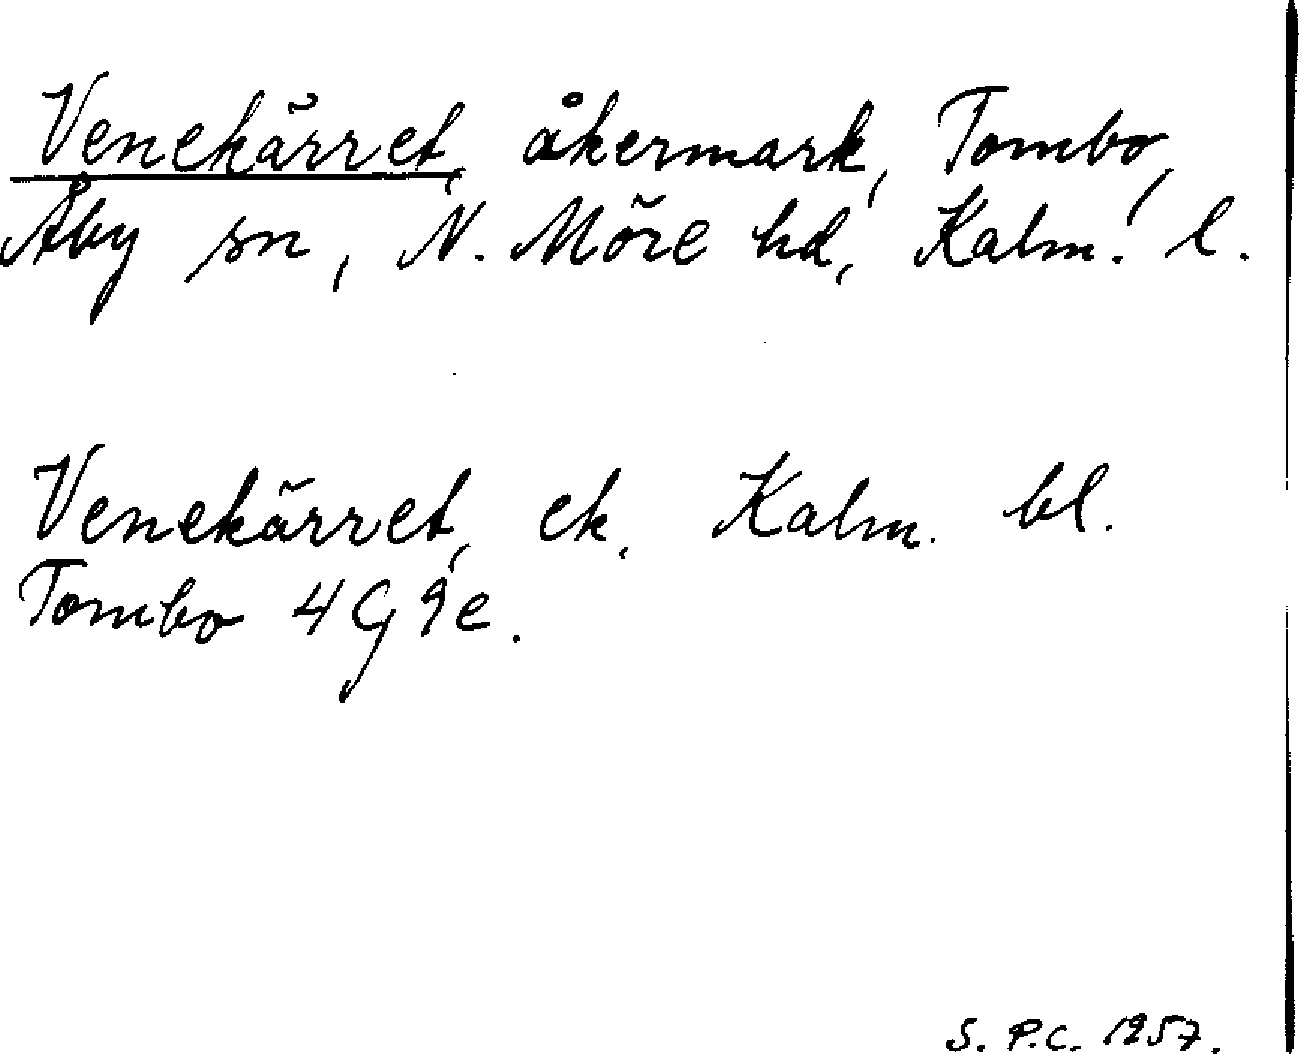 Venekärret, åkermark, Tombo,
Åby sn, N. Möre hd, Kalm. l.
Venekärret, ek. Kalm. bl.
Tombo 4G9e.
S. P.C. 1957.